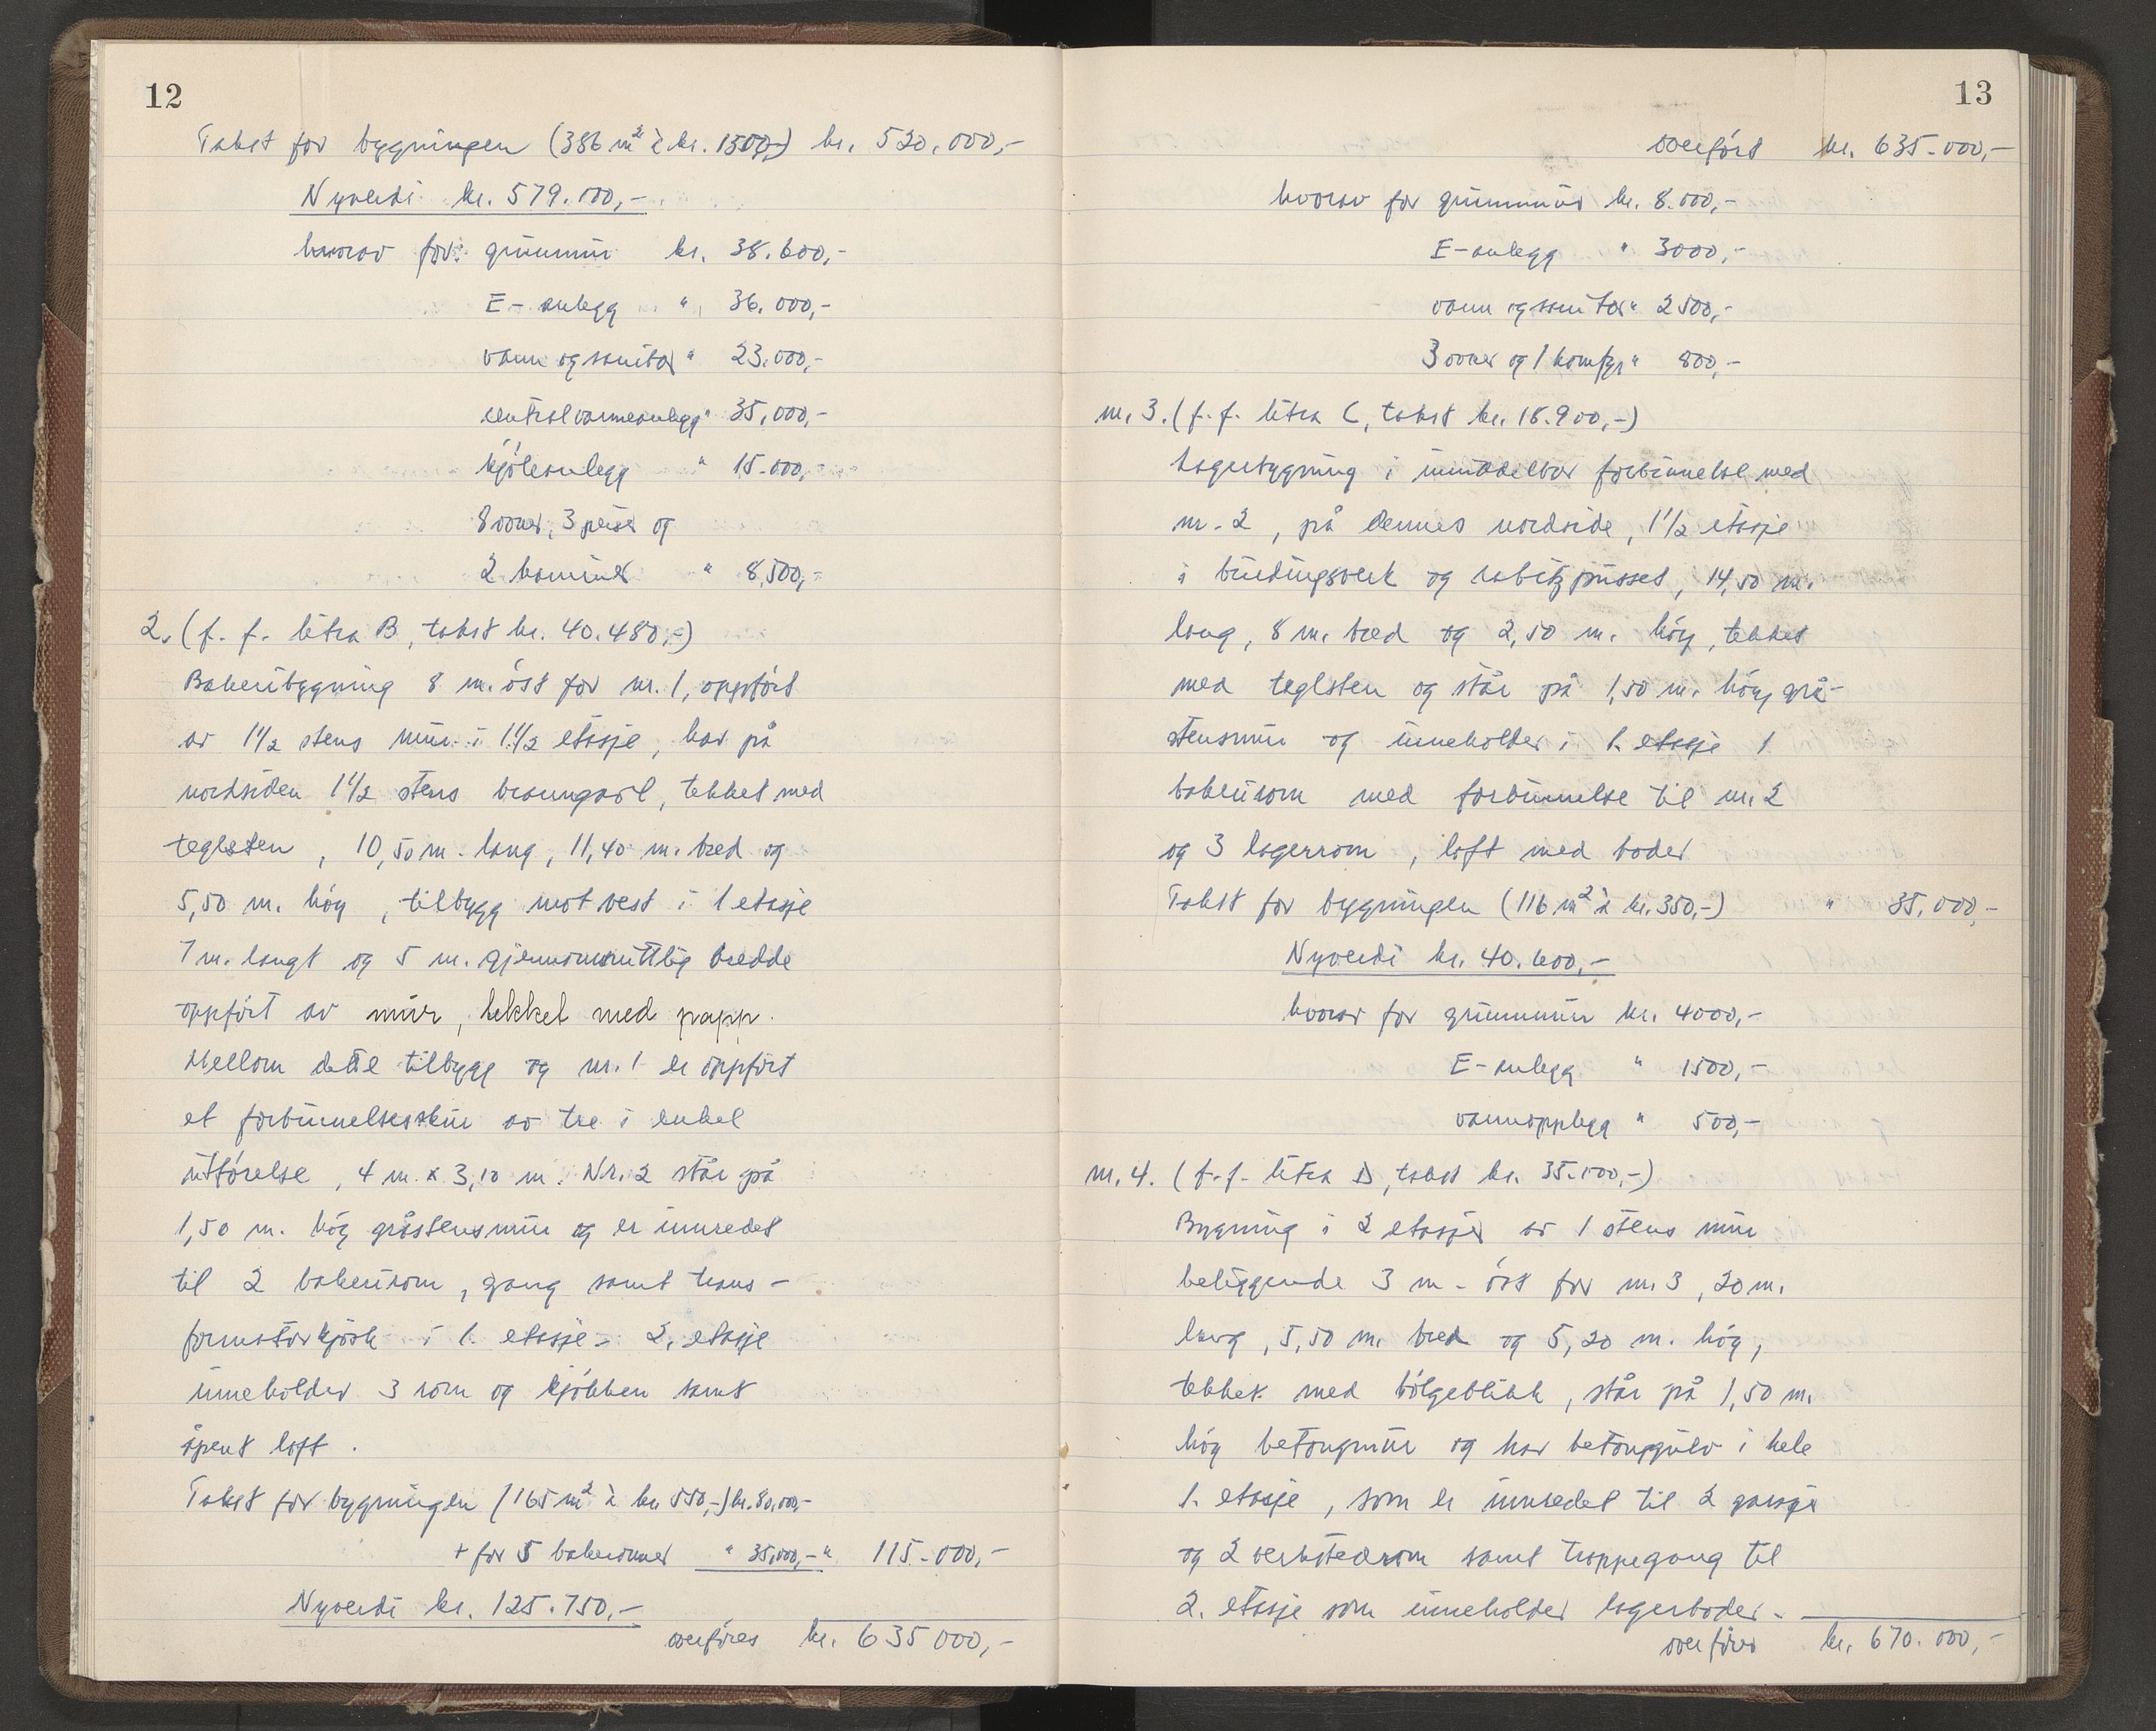 12
Takst for bygningen (386 m² à kr. 1500,-) kr. 520.000,-
Nyverdi kr. 579.000,-
hvorav for: grunnmur kr. 38.600,-
E-anlegg " 36.000,-
vann og sanitær " 23.000,-
centralvarmeanlegg " 35.000,-
kjöleanlegg " 15.000,-
8 ovner, 3 peiser og
2 kaminer " 8,500,-
2. (f. f. litra B, takst kr. 40.480,-)
Bakeribygning 8 m. öst for nr. 1, oppfört
av 1½ stens mur i 1½ etasje, har på
nordsiden 1½ stens branngavl, tekket med
teglsten, 10,50 m. lang, 11,40 m. bred og
5,50 m. höy, tilbygg mot vest i 1 etasje
7 m. langt og 5 m. gjennomsnittlig bredde
oppfört av mur, tekket med papp.
Mellom dette tilbygg og nr. 1 er oppfört
et forbinnelsesskur av tre i enkel
utförelse, 4 m. x 3,10 m. Nr. 2 står på
1,50 m. höy gråstensmur og er innredet
til 2 bakerirom, gang samt trans-
formatorkjosk i 1. etasje. 2. etasje
inneholder 3 rom og kjökken samt
åpent loft.
Takst for bygningen (165 m² à kr. 550,-) kr. 80.000,-
+ for 5 bakerovner " 35,000,- " 115.000,-
Nyverdi kr. 125.750,-
overföres kr. 635 000,-
13
overfört kr. 635.000,-
hvorav for grunnmur kr. 8.000,-
E-anlegg " 3000,-
vann og sanitær " 2500,-
3 ovner og 1 komfyr " 800,-
nr. 3. (f. f. litra C, takst kr. 18.900,-)
Lagerbygning i umiddelbar forbinnelse med
nr. 2, på dennes nordside, 1½ etasje
i bindingsverk og rabitzpusset, 14,50 m.
lang, 8 m. bred og 2,50 m. höy, tekket
med teglsten og står på 1,50 m. höy grå-
stensmur og inneholder i 1. etasje 1
bakerirom med forbinnelse til nr. 2
og 3 lagerrom, loft med boder
Takst for bygningen (116 m² à kr. 350,-) " 35.000,-
Nyverdi kr. 40.600,-
hvorav for grunnmur kr. 4000,-
E-anlegg " 1500,-
vannopplegg " 500,-
nr. 4. (f. f. litra D, takst kr. 35.000,-)
Bygning i 2 etasjer av 1 stens mur
beliggende 3 m. öst for nr. 3, 20 m.
lang, 5,50 m. bred og 5,20 m. höy,
tekket med bölgeblikk, står på 1,50 m.
höy betongmur og har betonggulv i hele
1. etasje, som er innredet til 2 garasjer
og 2 verkstedrom samt trappegang til
2. etasje som inneholder lagerboder.
overföres kr. 670.000,-